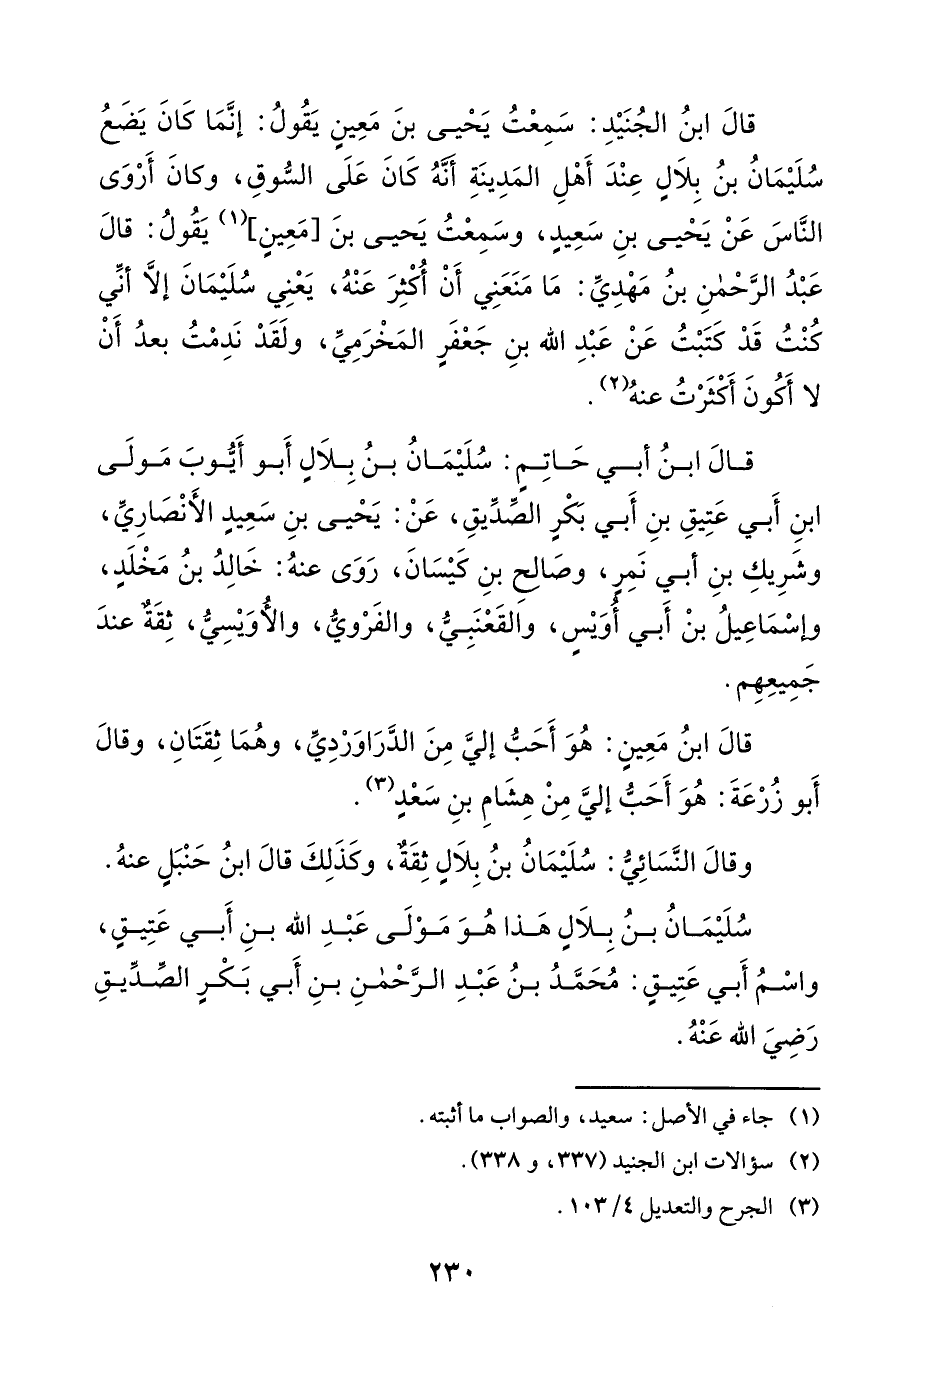 قالَ ابنُ الجُنَيْدِ: سَمِعْتُ يَحْيى بنَ مَعِينٍ يَقُولُ: إنَّمَا كَانَ يَضَعُ
سُلَيْمَانُ بنُ بِلَالٍ عِنْدَ أَهْلِ المَدِينَةِ أَنَّهُ كَانَ عَلَى السُّوقِ، وكانَ أَرْوَى
النَّاسَ عَنْ يَحْيى بنِ سَعِيدٍ، وسَمِعْتُ يَحيى بنَ [مَعِينٍ](١) يَقُولُ: قالَ
عَبْدُ الرَّحْمٰنِ بنُ مَهْدِيٍّ: مَا مَنَعَنِي أَنْ أُكْثِرَ عَنْهُ، يَعْنِي سُلَيْمَانَ إلَّا أنِّي
كُنْتُ قَدْ كَتَبْتُ عَنْ عَبْدِ الله بنِ جَعْفَرٍ المَخْرَمِيِّ، ولَقَدْ نَدِمْتُ بعدُ أَنْ
لا أَكُونَ أَكْثَرْتُ عنهُ(٢).
قَالَ ابنُ أبي حَاتِمٍ: سُلَيْمَانُ بنُ بِلَالٍ أَبو أَيُّوبَ مَولَى
ابنِ أَبي عَتِيقِ بنِ أَبي بَكْرٍ الصِّدِّيقِ، عَنْ: يَحْيى بنِ سَعِيدٍ الأَنْصَارِيِّ،
وشَرِيكِ بنِ أبي نَمِرٍ، وصَالِحِ بنِ كَيْسَانَ، رَوَى عنهُ: خَالِدُ بنُ مَخْلَدٍ،
وإسْمَاعِيلُ بنْ أَبي أُوَيْسٍ، والقَعْنَبِيُّ، والفَرْوِيُّ، والأُوَيْسِيُّ، ثِقَةٌ عندَ
جَمِيعِهِم.
قالَ ابنُ مَعِينٍ: هُوَ أَحَبُّ إليَّ مِنَ الدَّرَاوَرْدِيِّ، وهُمَا ثِقَتَانِ، وقالَ
أَبو زُرْعَةَ: هُوَ أَحَبُّ إليَّ مِنْ هِشَامِ بنِ سَعْدٍ(٣).
وقالَ النَّسَائِيُّ: سُلَيْمَانُ بنُ بِلَالٍ ثِقَةٌ، وكَذَلِكَ قالَ ابنُ حَنْبَلٍ عنهُ.
سُلَيْمَانُ بنُ بِلَالٍ هَذا هُوَ مَوْلَى عَبْدِ الله بنِ أَبي عَتِيقٍ،
واسْمُ أَبي عَتِيقٍ: مُحَمَّدُ بنُ عَبْدِ الرَّحْمٰنِ بنِ أَبي بَكْرٍ الصِّدِّيقِ
رَضِيَ الله عَنْهُ.
(١) جاء في الأصل: سعيد، والصواب ما أثبته.
(٢) سؤالات ابن الجنيد (٣٣٧، و ٣٣٨).
(٣) الجرح والتعديل ٤/ ١٠٣.
٢٣٠